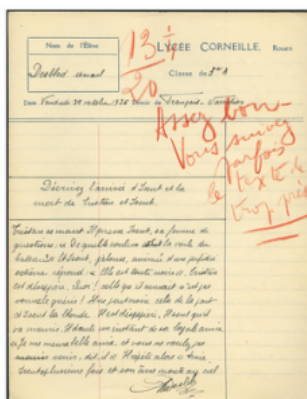 Nom de l'Élève
LYCÉE CORNEILLE, Rouen
13 ½
20
Classe de 3e A
Date Vendredi octobre Devoir de Français
Assez bon
Vous suivez
parfois
le texte de
trop près
Décrivez l'arrivée d'Iseut et la
mort de Tristan et Iseut.
Tristan se mourait Il pressa Iseut, sa femme de
questions : De quelle couleur est la voile du
Iseut, jalouse, animée d'une perfidie
répond : Elle est toute noire. Tristan
est désespéré. celle qu'il aimait n'est pas
venue le guérir ! de la part
d'Iseut la blonde Il est désespéré, il sent qu'il
va mourir, Il doute un instant de sa loyale amie
Je me meurs belle amie, et vous ne voulez pas
venir, dit-il Il répète alors trois
fois et son âme monte au ciel